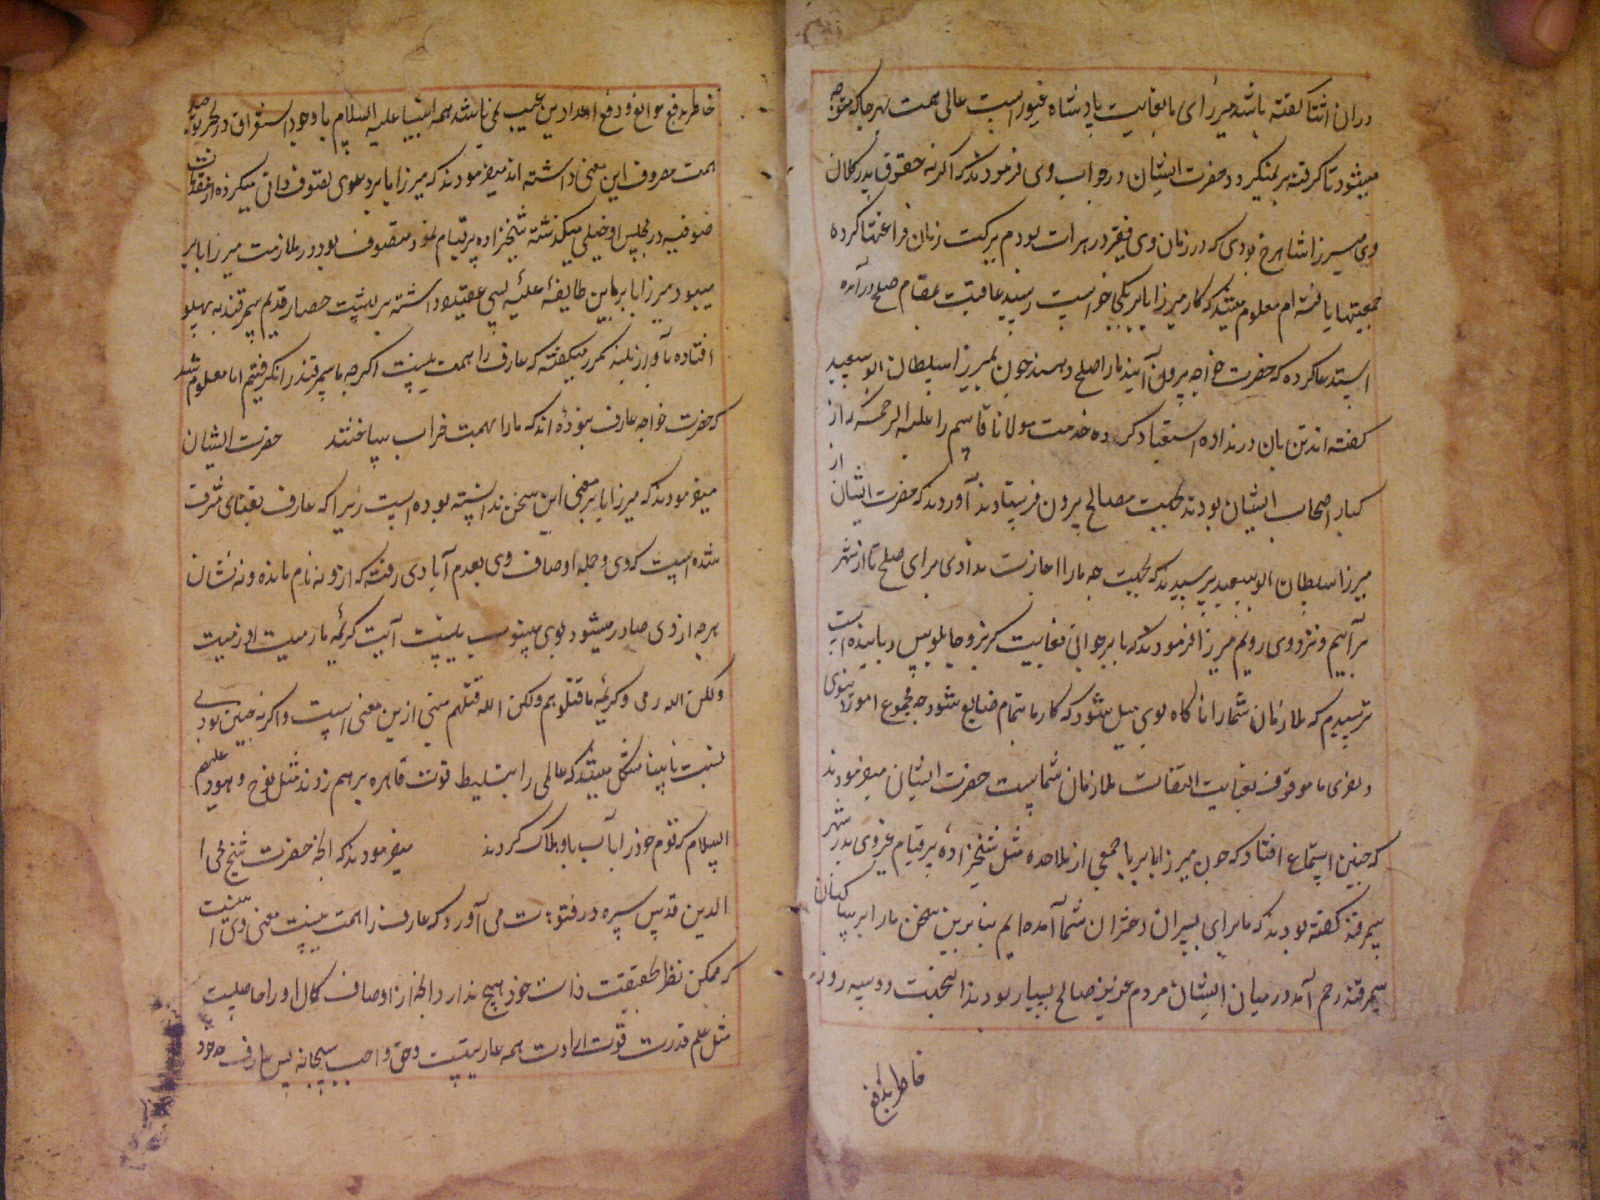 دران اثنا گفته باشد میرزای ما بغایت پادشاه غیور است عالی همت بهر جا که متوجه
میشود تا گرفته بر نمیگردد حضرت ایشان در جواب وی فرمودند که اگر نه حقوق پدر کلان
وی میرزا شاهرخ بودی که در زمان وی فقیر در هرات بودم ببرکت زمان فراغتها کرده
جمعیتها یافته ام معلوم میشد که کار میرزا بابر بکجا خواست رسید عاقبت بمقام صلح درآمده
استدعا کرده که حضرت خواجه بیرون آیند ما را صلح دهند چون بمیرزا سلطان ابو سعید
گفته اند تن بان در نداده استبعاد کرده خدمت مولانا قاسم را علیه الرحمه که از
کبار اصحاب ایشان بودند بجهت مصالح بیرون فرستادند آوردند که حضرت ایشان از
میرزا سلطان ابو سعید پرسیدند که بجهت چه ما را اجازت ندادی برای صلح تا از شهر
برآییم و نزد وی رویم میرزا فرمودند که بابر جوانی بغایت کریز و چاپلوس و باینده است
ترسیدم که ملازمان شما را ناگاه بوی میل شود که کار ما بتمام ضایع شود چه مجموع امور دنیوی
و اخروی ما موقوف بغایت التفات ملازمان شماست حضرت ایشان میفرمودند
که چنین استماع افتاد که چون میرزا بابر با جمعی از ملاحده مثل شیخزاده پیر قیام غزوی بدر شهر
سمرقند گفته بودند که ما برای پسران دختران شما آمده ایم بنابرین سخن ما را بر بیکسان
سمرقند رحم آمد در میان ایشان مردم عزیز صالح بسیار بودند ازینجهت دو سه روزی
خاطر بدفع
خاطر بدفع موانع و دفع اعدا دین عیب نمی باشد همه انبیا علیه السلام با وجود استغراق در بحر توحید
همت مصروف این معنی داشته اند میفرمودند که میرزا بابر دعوی تصوف ذاتی میکرده از مقدمات
صوفیه در مجلس او خیلی میگذشته شیخزاده پیر قیام نمود متصوف بود در ملازمت میرزا بابر
میبود میرزا بابر باین طایفه علیه بسی عقیده داشته بر پشت حصار قدیم سمرقند به پهلو
افتاده بآواز بلند مکرر میگفته که عارف را همت نیست اگرچه ما سمرقند را نگرفتیم اما معلوم شد
که حضرت خواجه عارف نبوده اند که ما را بهمت خراب ساختند حضرت ایشان
میفرمودند که میرزا بابر معنی این سخن ندانسته بوده است زیرا که عارف بفنای مشرف
شده است که وی و جمله اوصاف وی بعدم آبادی رفته که ازو نه نام مانده و نه نشان
هرچه از وی صادر میشود بوی منسوب نیست آیت کریمه ما رمیت اذ رمیت
ولکن الله رمی و کریمه ما قتلوهم ولکن الله قتلهم مبنی ازین معنی است و اگر نه چنین بودی
نسبت بانبیا مشکل میشد که عالمی را بتسلیط قوت قاهره بر هم زدند مثل نوح و هود علیهم
السلام که قوم خود را بآب باد هلاک کردند میفرمودند که انچه حضرت شیخ محی ا
الدین قدس سره در فتوحات می آورد که عارف را همت نیست معنی وی آنست
که ممکن نظر بحقیقت ذات خود هیچ ندارد انچه از اوصاف کمال او را حاصلست
مثل علم قدرت قوت ارادت همه عاریتست وحق واجب سبحانه پس عارف هرچند